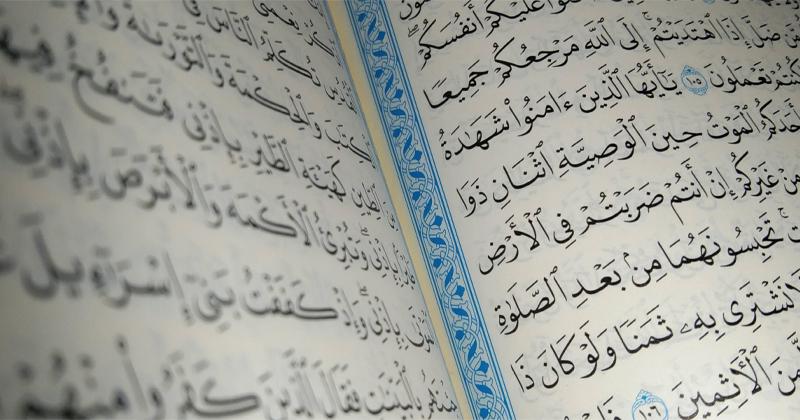 عَلَيْكُمْ أَنفُسَكُمْ
مَّن ضَلَّ إِذَا ٱهْتَدَيْتُمْ إِلَى ٱللَّهِ مَرْجِعُكُمْ جَمِيعًا
كُنتُمْ تَعْمَلُونَ ١٠٥ يَٰٓأَيُّهَا ٱلَّذِينَ ءَامَنُوا۟ شَهَٰدَةُ
أَحَدَكُمُ ٱلْمَوْتُ حِينَ ٱلْوَصِيَّةِ ٱثْنَانِ ذَوَا
مِنْ غَيْرِكُمْ إِنْ أَنتُمْ ضَرَبْتُمْ فِى ٱلْأَرْضِ
تَحْبِسُونَهُمَا مِنۢ بَعْدِ ٱلصَّلَوٰةِ
نَشْتَرِى بِهِۦ ثَمَنًا وَلَوْ كَانَ ذَا
ٱلْءَاثِمِينَ ١٠٦
تُكَلِّمُ ٱلنَّاسَ فِى
وَٱلْحِكْمَةَ وَٱلتَّوْرَىٰةَ
ٱلطِّينِ كَهَيْـَٔةِ ٱلطَّيْرِ بِإِذْنِى فَتَنفُخُ فِيهَا
بِإِذْنِى وَتُبْرِئُ ٱلْأَكْمَهَ وَٱلْأَبْرَصَ بِإِذْنِى
بِإِذْنِى وَإِذْ كَفَفْتُ بَنِىٓ إِسْرَٰٓءِيلَ
بِٱلْبَيِّنَٰتِ فَقَالَ ٱلَّذِينَ كَفَرُوا۟ مِنْهُمْ